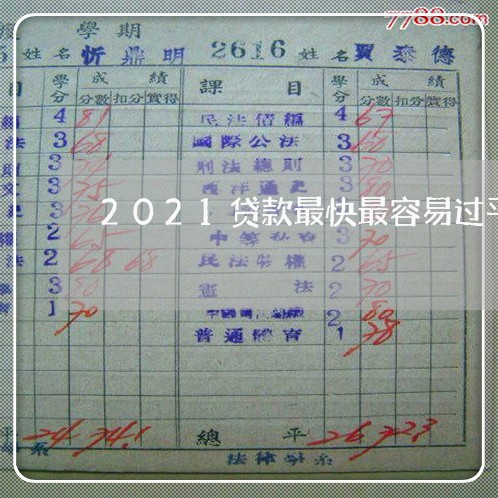 7788.com
學期
姓名 忻鼎明 2616 姓名 賈泰德
目 學分 成績 課目 學分 成績
分數 扣分 實得 分數 扣分 實得
4 81 民法債編 4 67
法 3 68 國際公法 3 60
3 刑法總則 3 70
3 75 西洋通史 3 80
2021贷款最快最容易过平
2 65 3 70
法 2 68 68 民法物權 2 65
3 80 憲法 2 70
1 70 2 80
普通體育 1 78
平 24 74.1 總平 26 72.3
系 法律學系